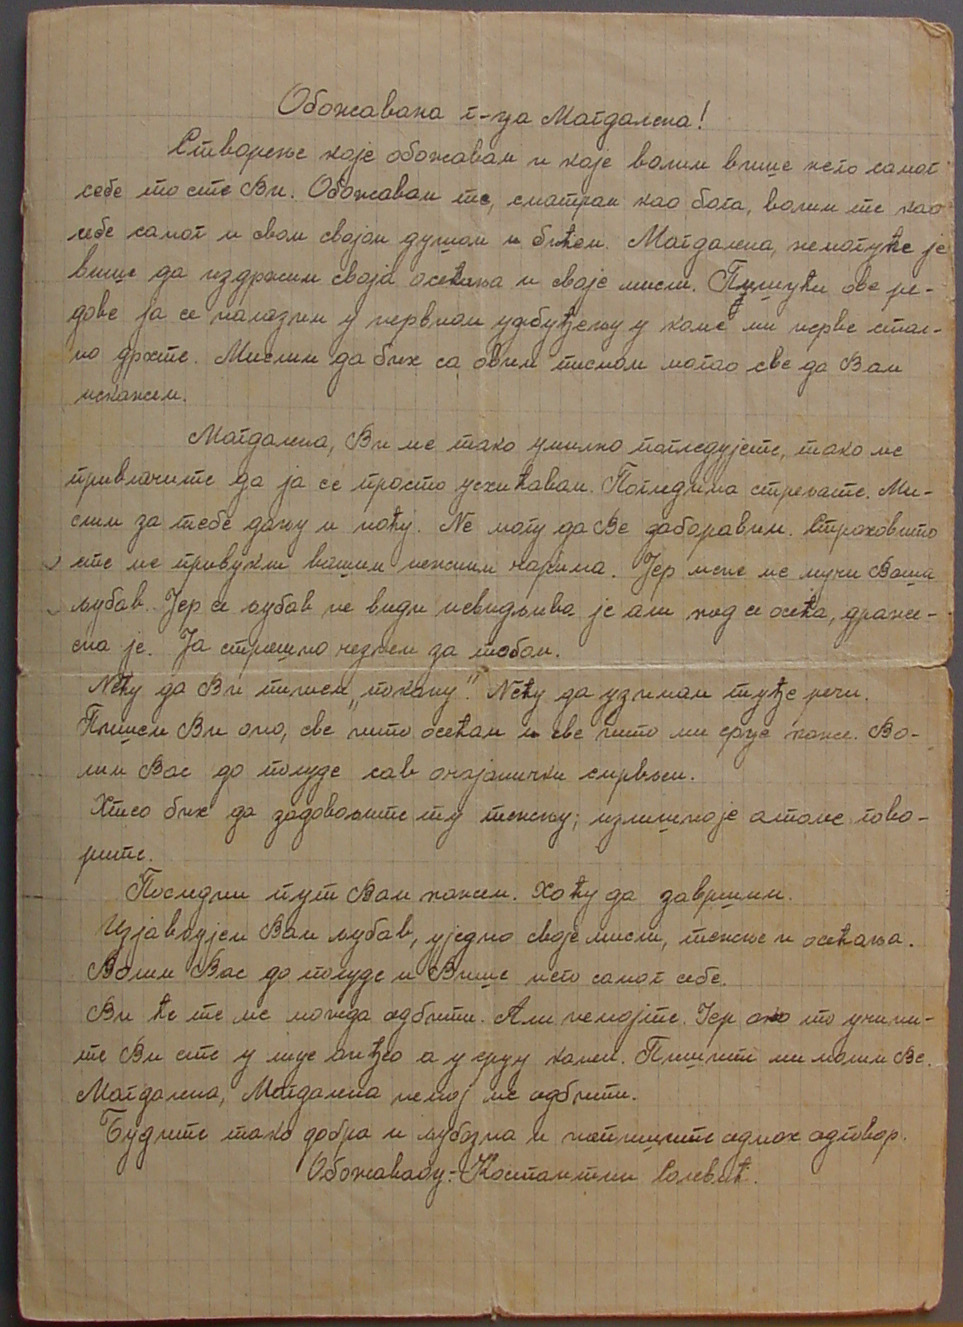 Обожавана г-ца Магдалена!
Створење које обожавам и које волим више него самог
себе то сте Ви. Обожавам те, сматрам као бога, волим те као
себе самог и свом својом душом и бићем. Магдалена, немогуће је
више да издржим своја осећања и своје мисли. Пишући ове ре-
дове ја се налазим у нервном узбуђењу у коме ми нерве стал-
но дрхте. Мислим да бих са овим писмом могао све да Вам
искажем.
Магдалена, Ви ме тако умилно погледујете, тако ме
привлачите да ја се просто усхићавам. Погледима стрељате. Ми-
слим за тебе дању и ноћу. Не могу да Ве заборавим. Страховито
сте ме привукли вашим нежним чарима. Јер мене ме мучи Ваша
љубав. Јер се љубав не види невидљива је али код се осећа, драже-
сна је. Ја страшно чезнем за тобом.
Нећу да Ви пишем „покану". Нећу да узимам туђе речи.
Пишем Ви оно, све што осећам и све што ми срце каже. Во-
лим Вас до полуде сав очајанички смрвљен.
Хтео бих да задовољите ту тежњу; излишноје атоме гово-
рите.
Последни пут Вам кажем. Хоћу да завршим.
Изјавиујем Вам љубав, уједно своје мисли, тежње и осећања.
Волим Вас до полуде и Више него самог себе.
Ви ће те ме можда одбити. Али немојте. Јер ако то учини-
те Ви сте у лице анђео а у срцу камен. Пишите ми молим Ве.
Магдалена, Магдалена немој ме одбити.
Будите тако добра и љубазна и напишите одмах одговор.
Обожаваоц:- Костантин